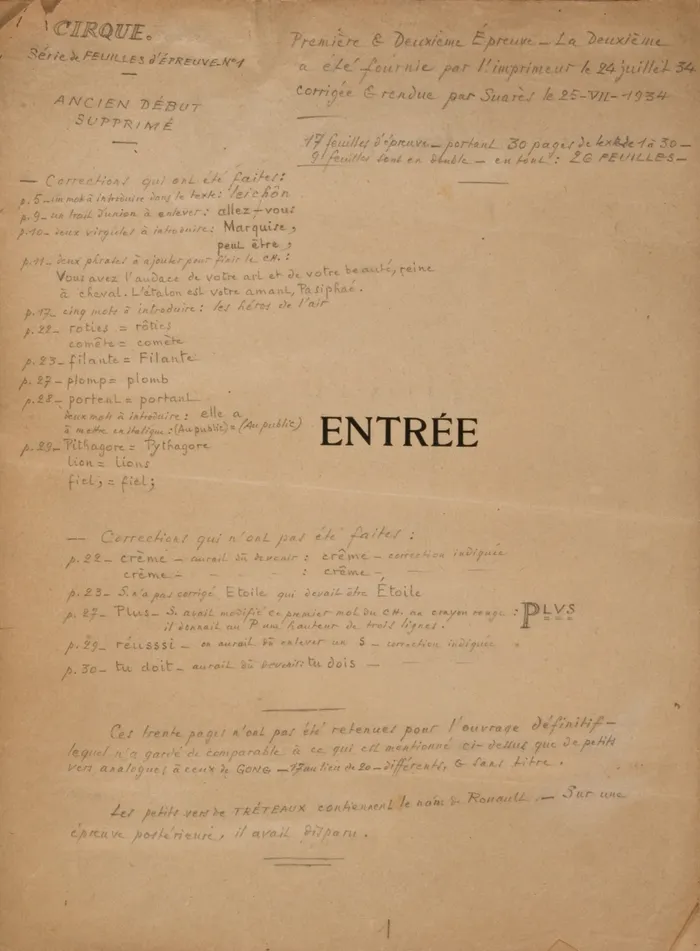 CIRQUE.
Série de FEUILLES d'ÉPREUVE-N°1
ANCIEN DÉBUT
SUPPRIMÉ
Première & Deuxième Épreuve - La Deuxième
a été fournie par l'imprimeur le 24 juillet 34
corrigée & rendue par Suarès le 25-VII-1934
17 feuilles d'épreuve - portant 30 pages de texte de 1 à 30 -
9 feuilles sont en double - en tout : 26 FEUILLES -
— Corrections qui ont été faites:
p. 5 - un mot à introduire dans le texte: leichôn
p. 9 - un trait d'union à enlever: allez-vous
p. 10 - deux virgules à introduire: Marquise,
peut être,
p. 11 - deux phrases à ajouter pour finir le CH. :
Vous avez l'audace de votre art et de votre beauté, reine
à cheval. L'étalon est votre amant, Pasiphaé.
p. 17 - cinq mots à introduire: les héros de l'air
p. 22 - roties = rôties
comête = comète
p. 23 - filante = Filante
p. 27 - plomp = plomb
p. 28 - portent = portant
deux mots à introduire: elle a
à mettre en italique: (Au public) = (Au public)
p. 29 - Pithagore = Pythagore
lion = lions
fiel; = fiel;
ENTRÉE
— Corrections qui n'ont pas été faites :
p. 22 - crème - aurait dû devenir : crême - correction indiquée
crème - - - - : crême - - -
p. 23 - S. n'a pas corrigé Etoile qui devait être Étoile
p. 27 - Plus - S. avait modifié ce premier mot du CH. au crayon rouge : PLVS
il donnait au P une hauteur de trois lignes.
p. 29 - réusssi - on aurait dû enlever un S - correction indiquée
p. 30 - tu doit - aurait dû devenir: tu dois - - -
Ces trente pages n'ont pas été retenues pour l'ouvrage définitif -
lequel n'a gardé de comparable à ce qui est mentionné ci-dessus que de petits
vers analogues à ceux de GONG - 17 au lieu de 20 - différents, & sans titre.
Les petits vers de TRÉTEAUX contiennent le nom de Rouault. - Sur une
épreuve postérieure, il avait disparu.